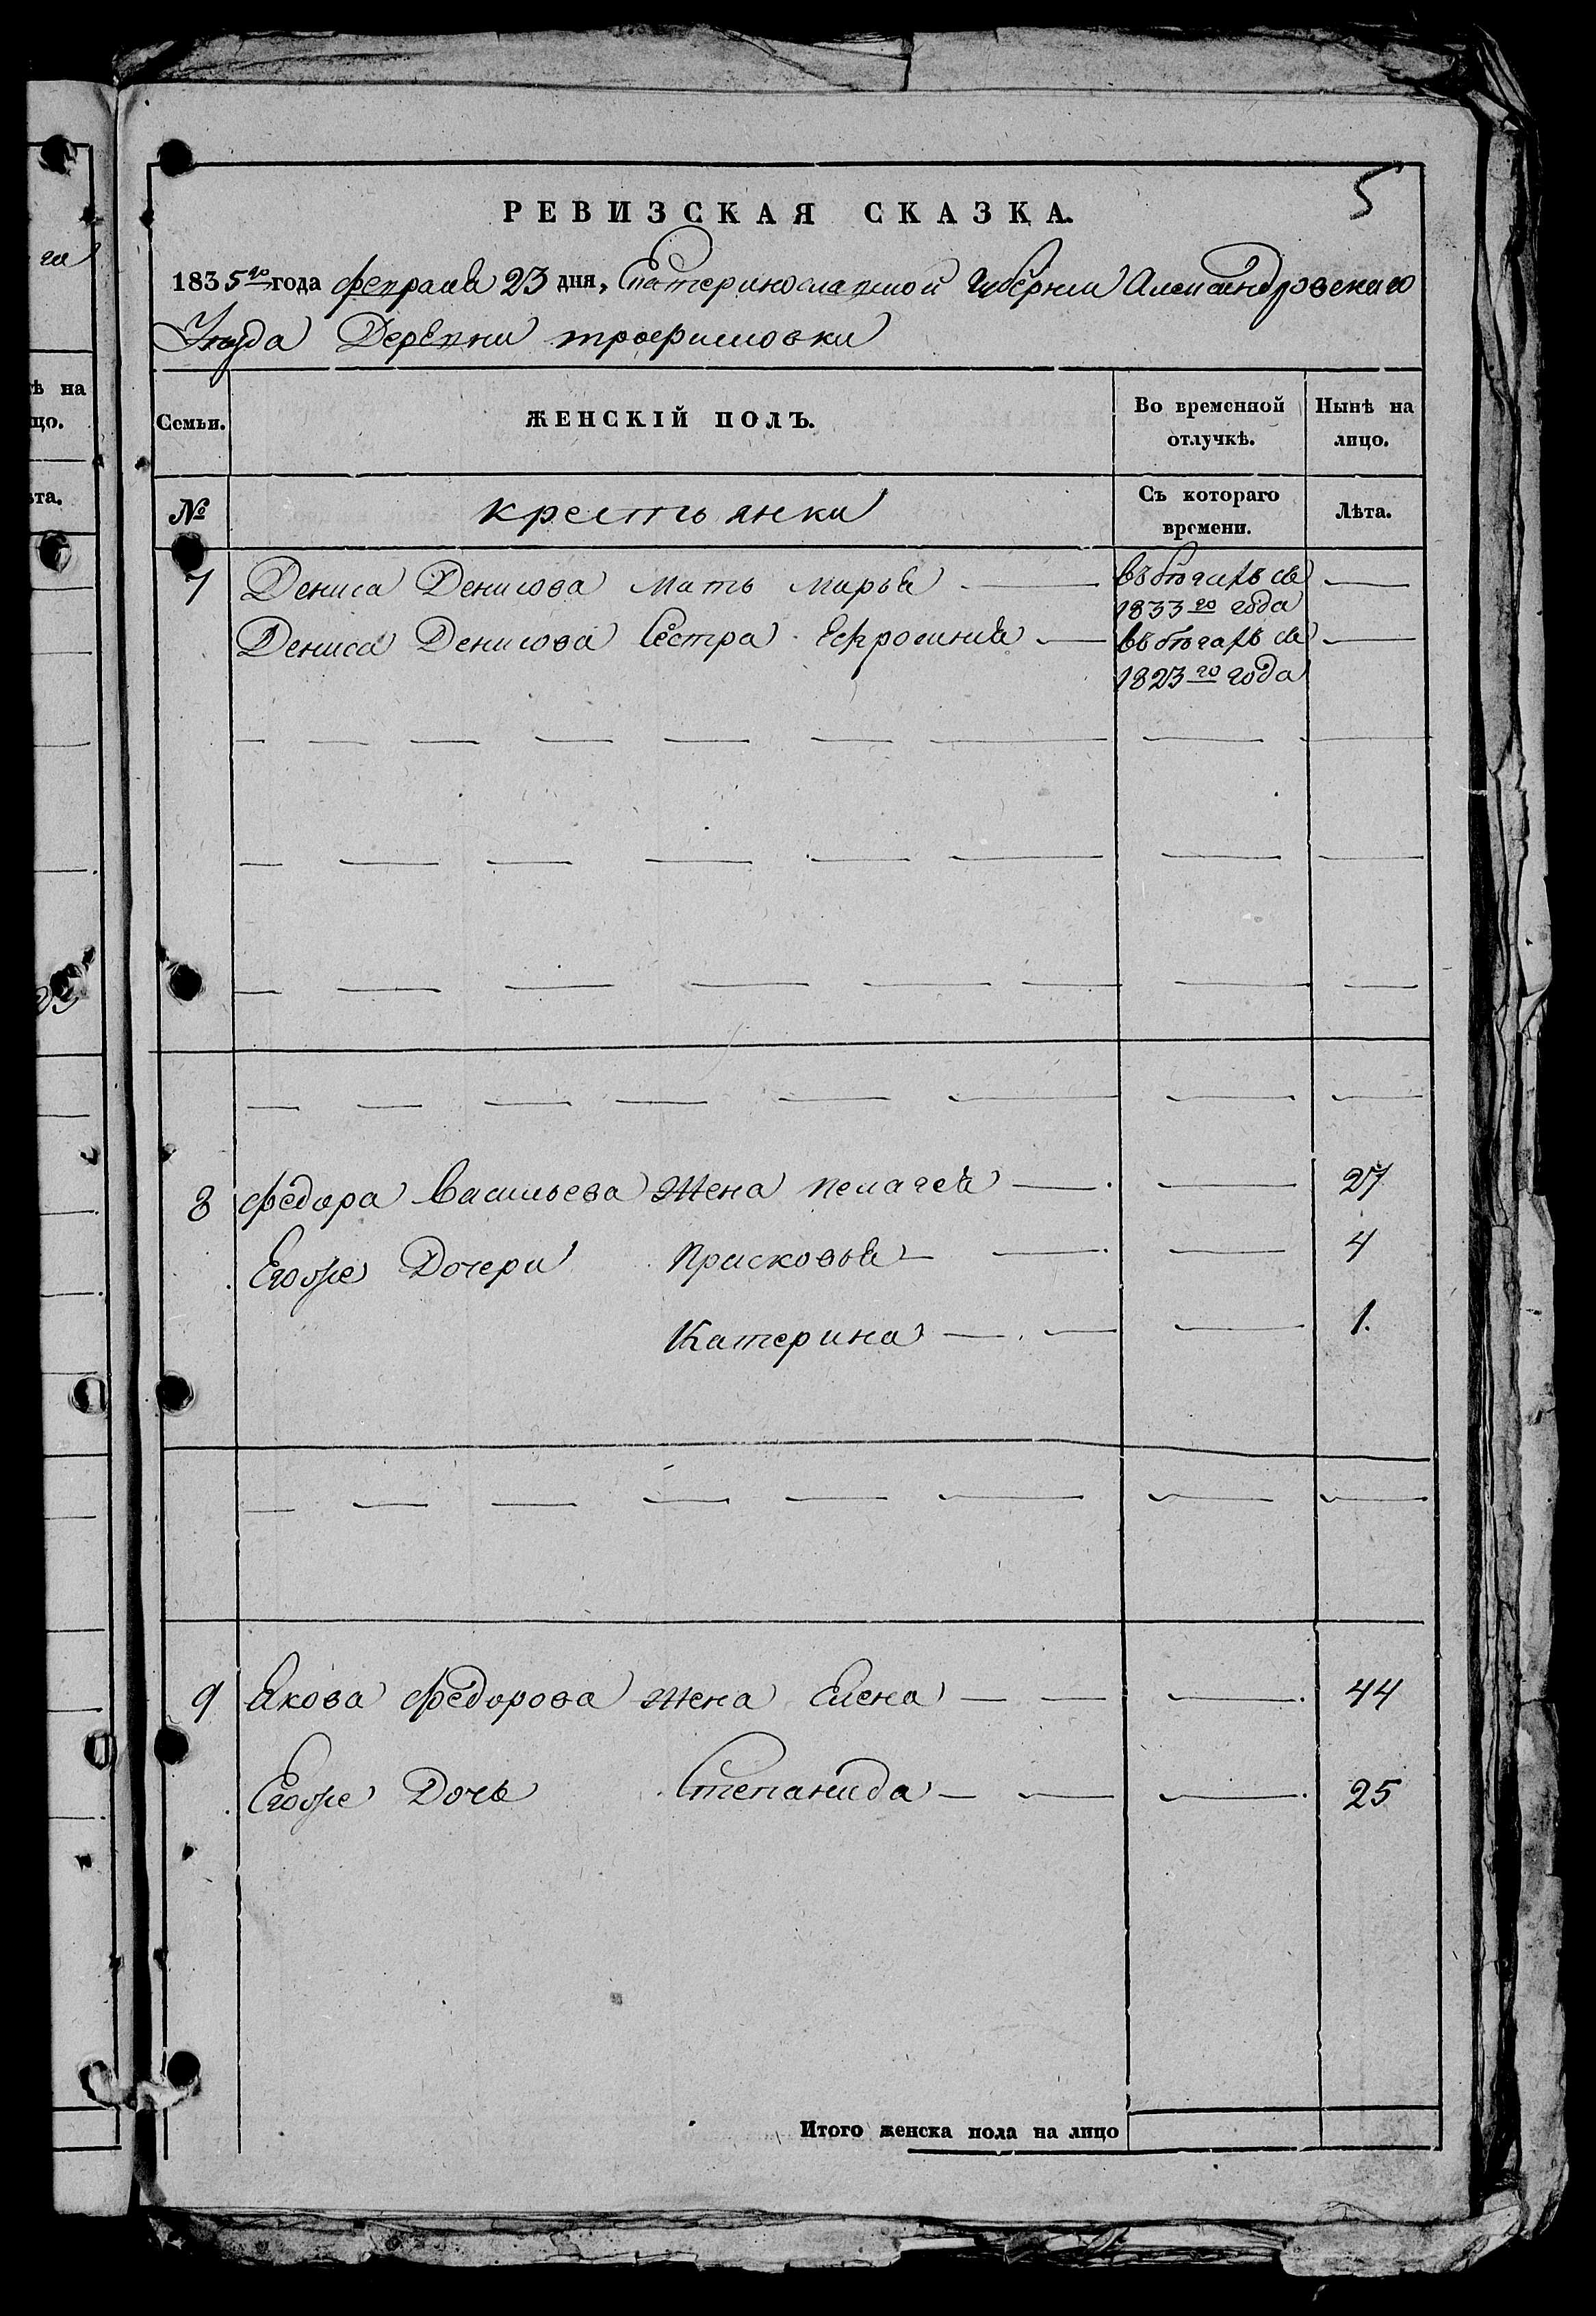 5
РЕВИЗСКАЯ СКАЗКА.
1835го года февраля 23 дня, Екатеринославской Губернии Александровскаго
Уезда Деревни трофимовки
Семьи. ЖЕНСКІЙ ПОЛЪ. Во временной отлучкѣ. Нынѣ на лицо.
№ крестьянки Съ котораго времени. Лѣта.
7 Дениса Денисова мать марья — въ бѣгахъ съ 1833го года —
Дениса Денисова Сестра Ефросинья — въ бѣгахъ съ 1823го года —
8 федора Васильева жена пелагея — — 27
Егоже Дочери Прасковья — — 4
Катерина — — 1.
9 Якова федорова жена Елена — — 44
Егоже Дочь Степанида — — 25
Итого женска пола на лицо
ѣ на
цо.
ѣта.